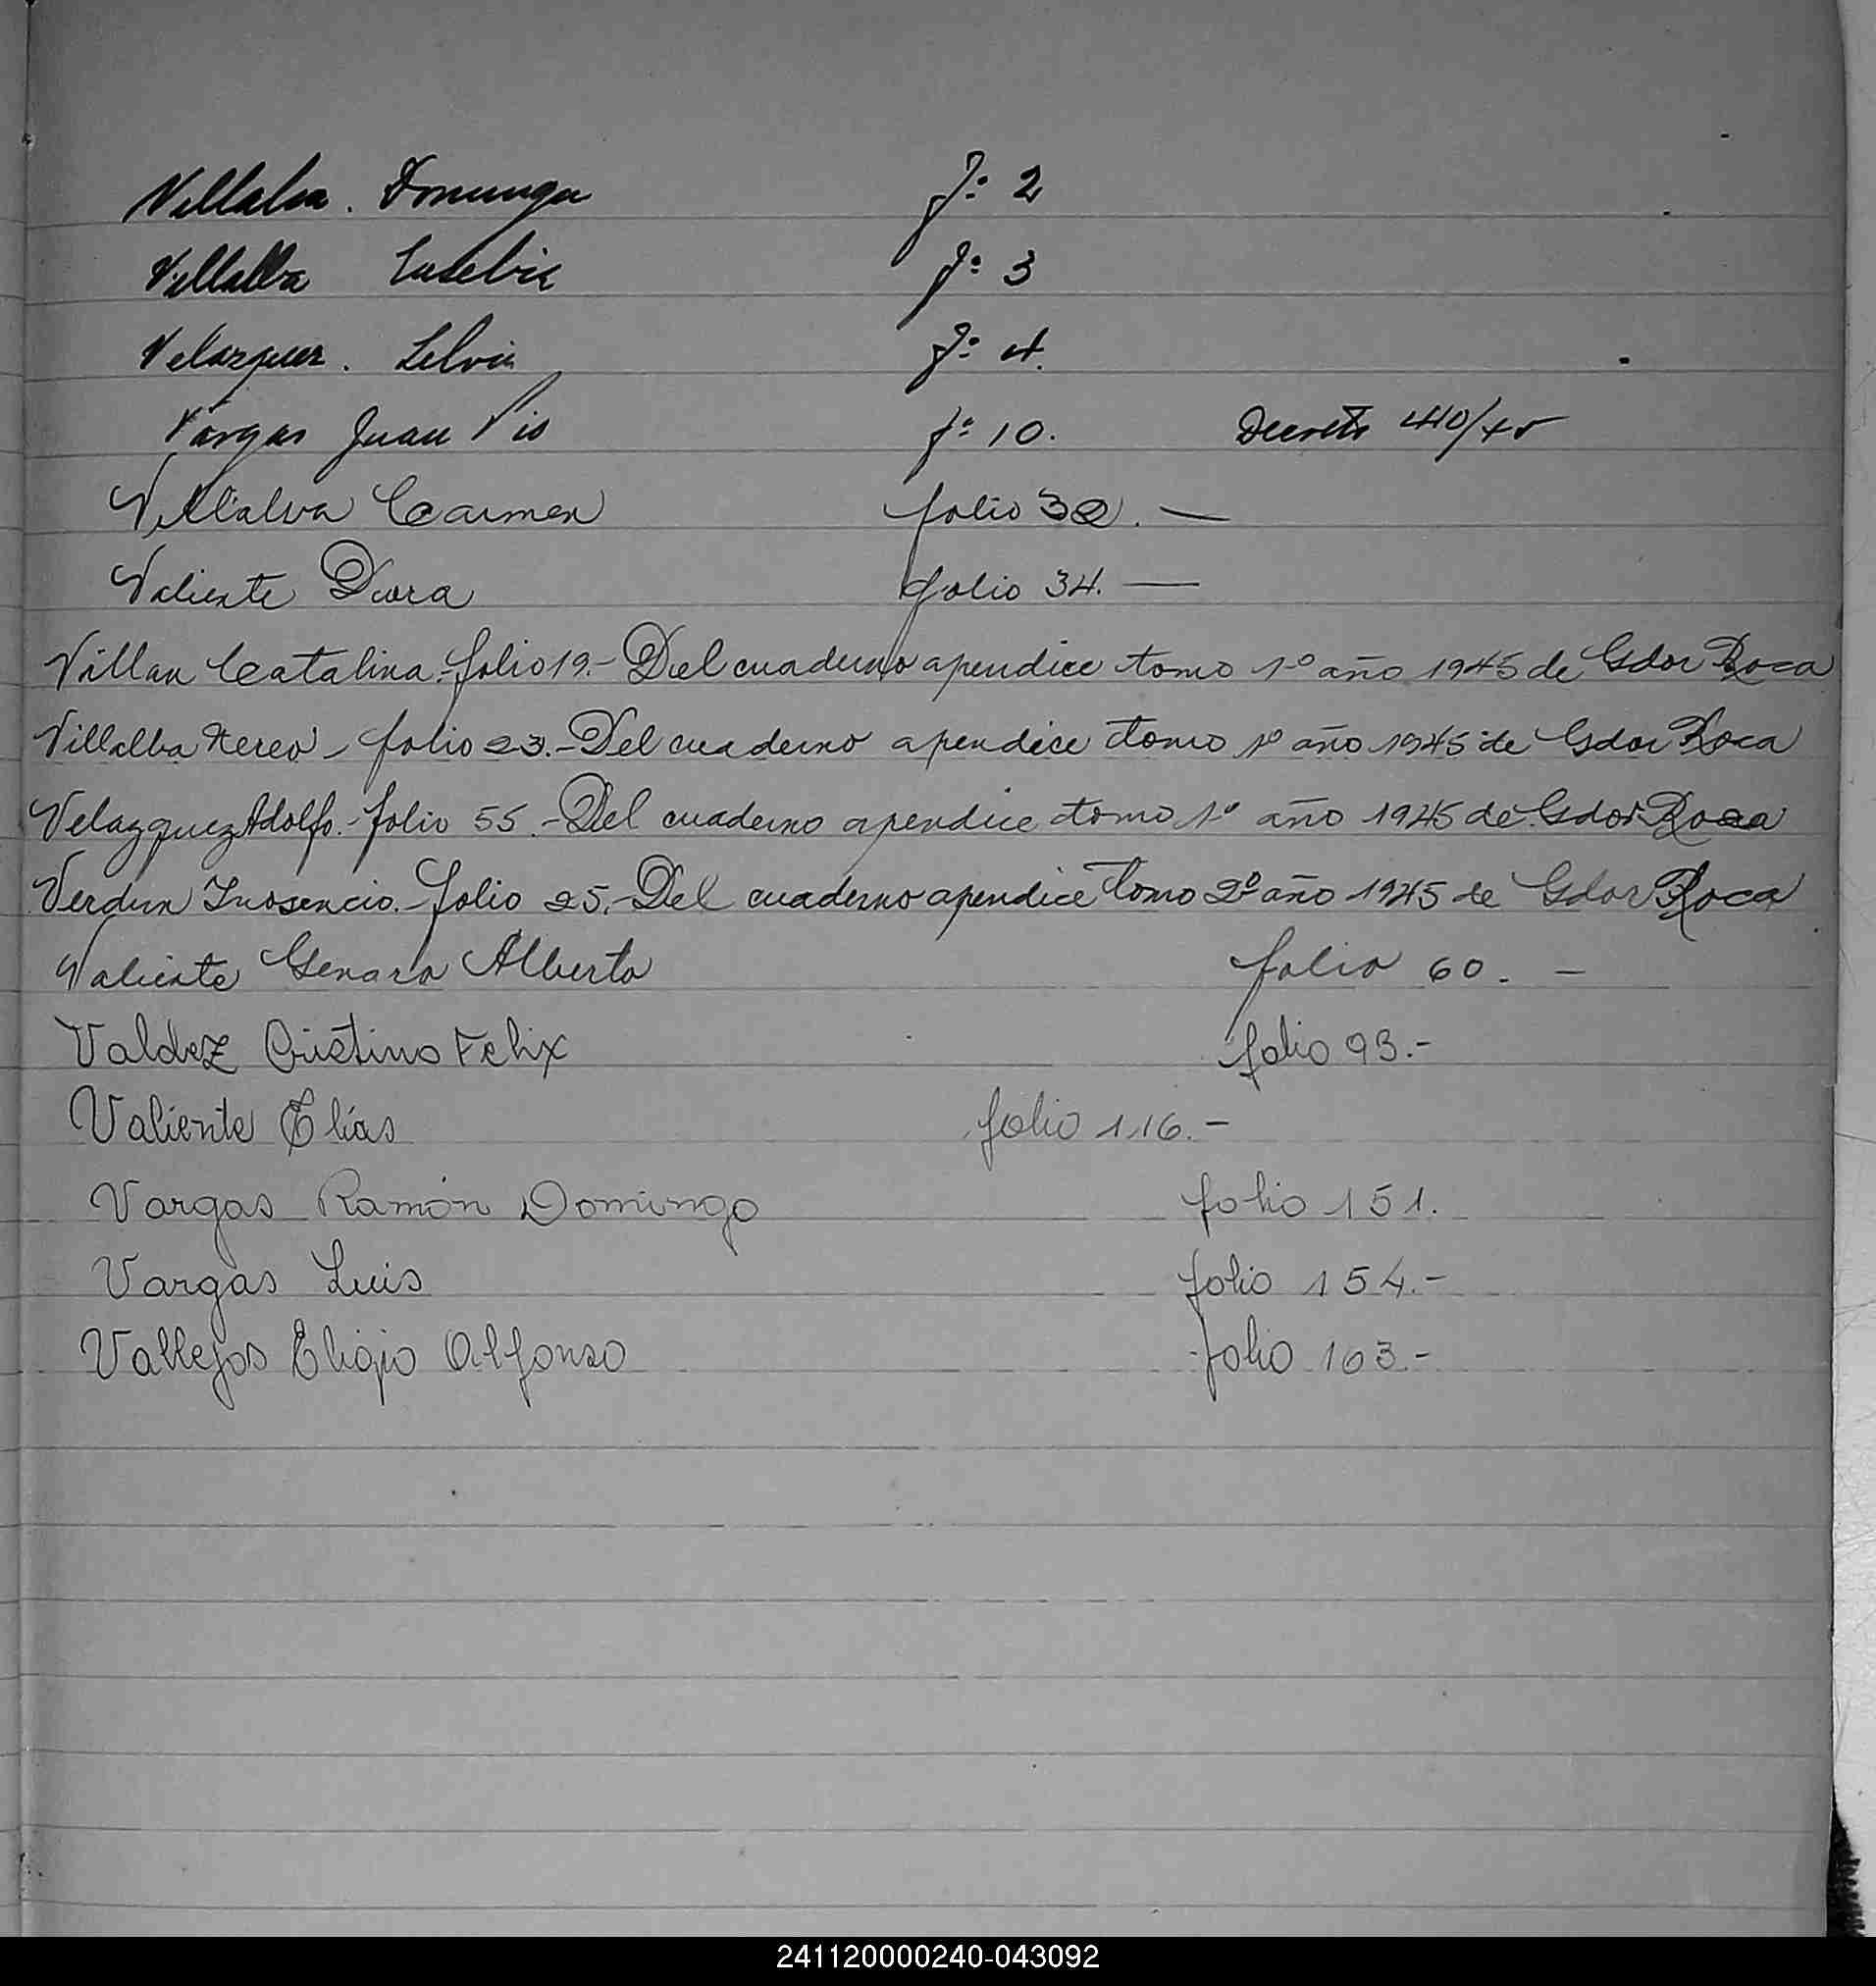 Villalba. Dominga f° 2
Villalba Eusebia f° 3
Velazquez. Selvia f° 4.
Vargas Juan Pio f° 10. Decreto 440/45
Villalva Carmen folio 32. —
Valiente Dora folio 34. —
Villan Catalina.- folio 19.- Del cuaderno apendice tomo 1° año 1945 de Gdor Roca
Villalba Nereo - folio 23.- Del cuaderno apendice tomo 1° año 1945 de Gdor Roca
Velazquez Adolfo.- folio 55.- Del cuaderno apendice tomo 1° año 1945 de Gdor Roca
Verdun Inosencio.- folio 25.- Del cuaderno apendice tomo 2° año 1945 de Gdor Roca
Valiente Genaro Alberto folio 60. -
Valdez Cristino Felix folio 93.-
Valiente Elías folio 116.-
Vargas Ramón Domingo folio 151.
Vargas Luis folio 154.-
Vallejos Eligio Alfonso folio 163.-
241120000240-043092